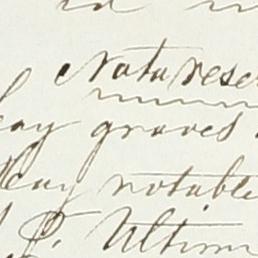 Nata rese
hay graves
hay notable
P. Ultim